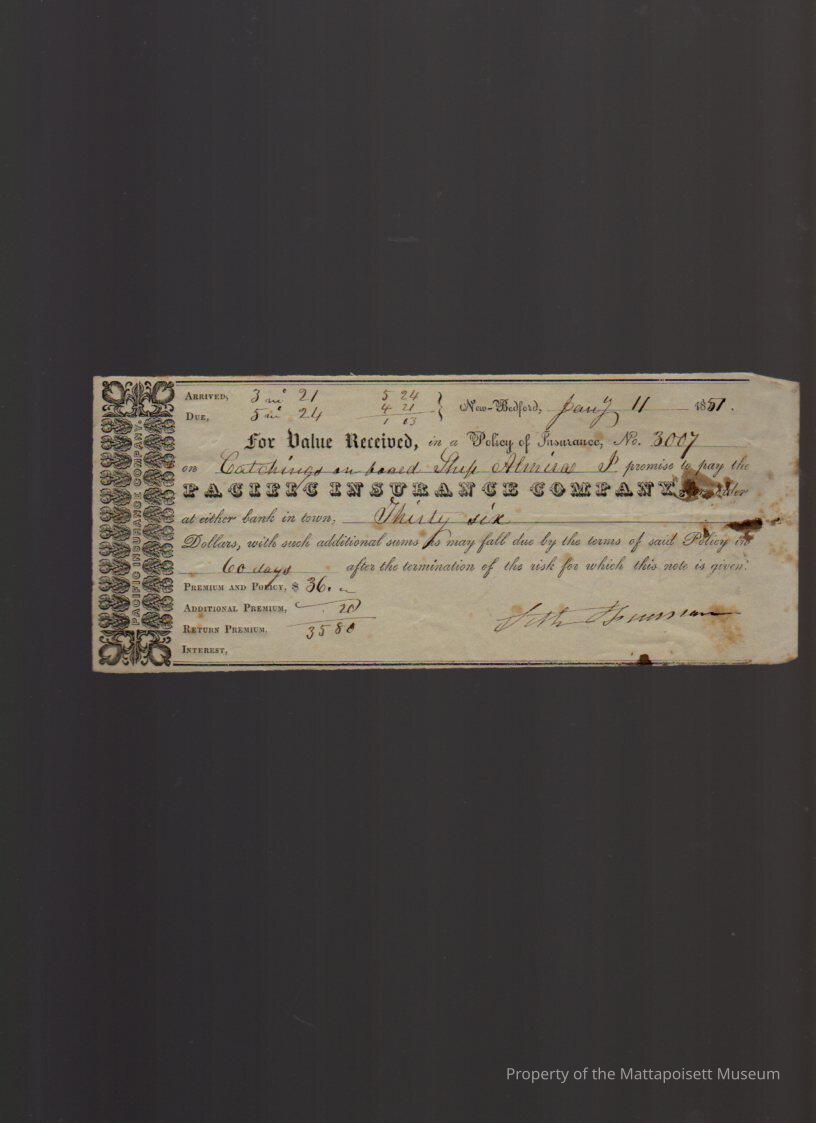 ARRIVED, 3 mo 21 5 24
DUE, 5 mo 24 4 21
1 03
New-Bedford, Jany 11 1851.
For Value Received, in a Policy of Insurance, No. 3007
on Catchings on board Ship Almira I promise to pay the
PACIFIC INSURANCE COMPANY, or order
at either bank in town, Thirty six
Dollars, with such additional sums as may fall due by the terms of said Policy in
60 days after the termination of the risk for which this note is given.
PREMIUM AND POLICY, $ 36.
ADDITIONAL PREMIUM, . 20
RETURN PREMIUM, 35 80
INTEREST,
Seth Freeman
PACIFIC INSURANCE COMPANY.
Property of the Mattapoisett Museum